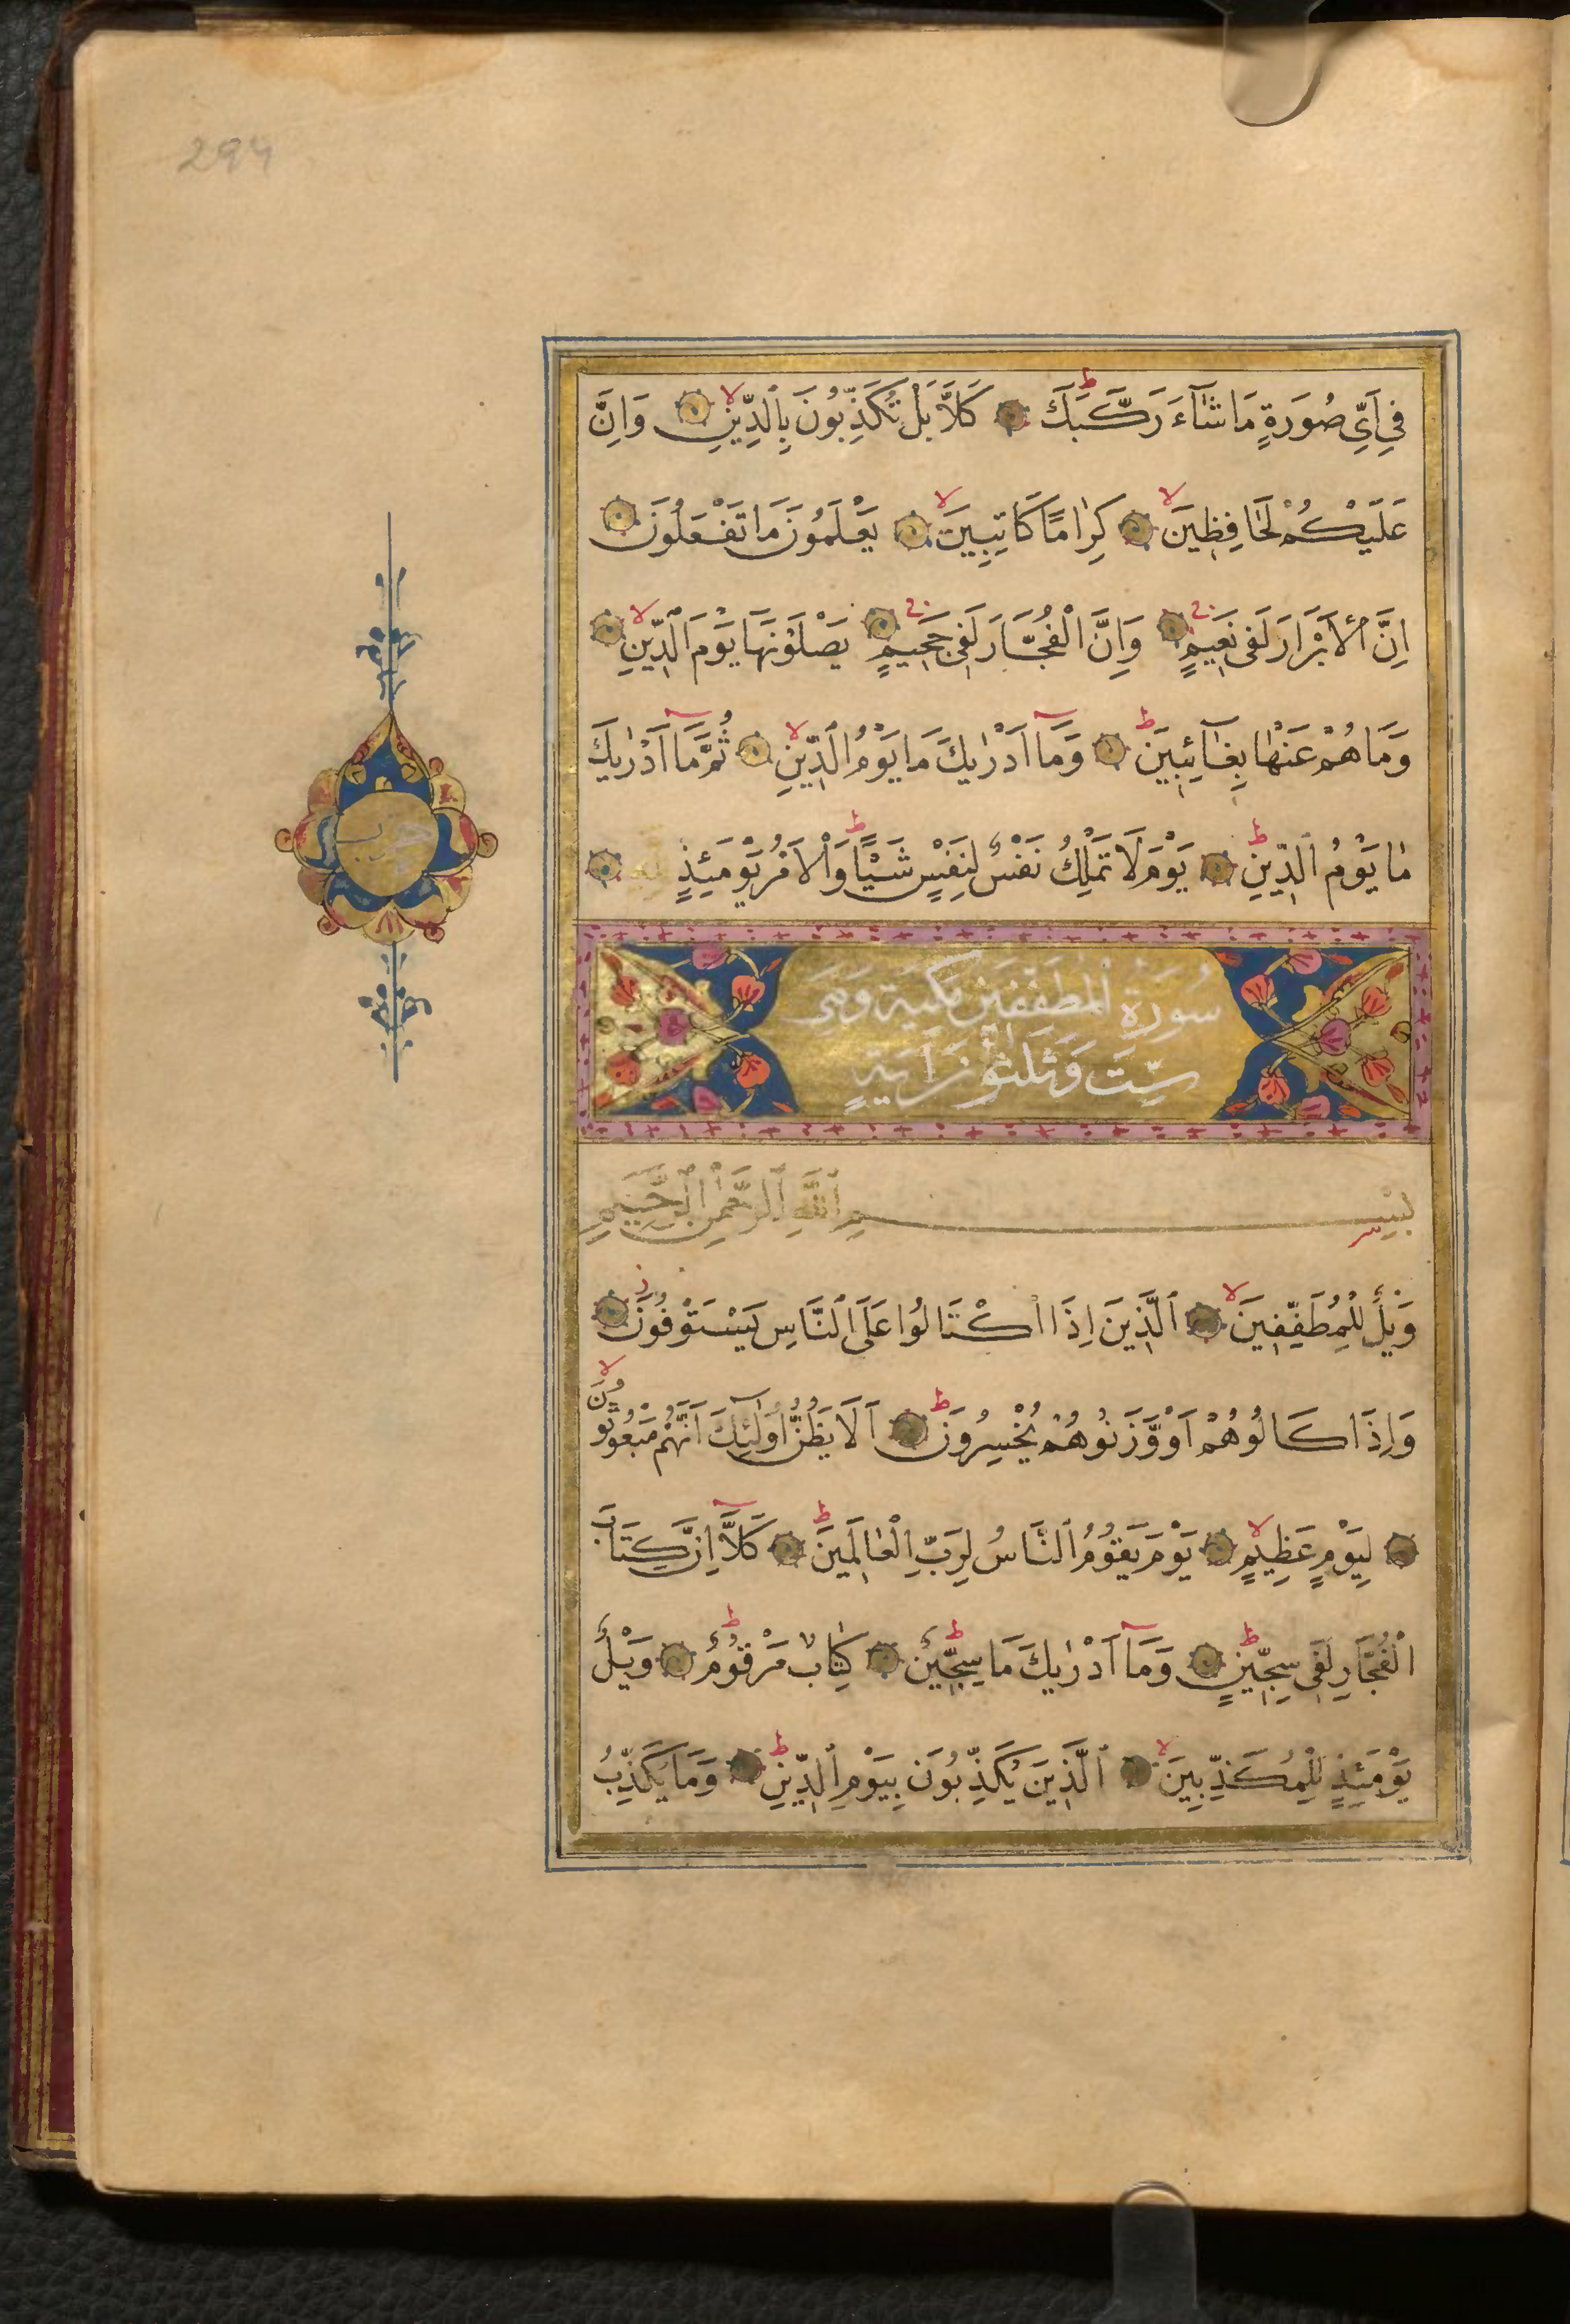 294
فِي اَيِّ صُورَةٍ مَا شَٓاءَ رَكَّبَكَ ط كَلَّا بَلْ تُكَذِّبُونَ بِالدِّينِ لا وَاِنَّ
عَلَيْكُمْ لَحَافِظِينَ لا كِرَامًا كَاتِبِينَ لا يَعْلَمُونَ مَا تَفْعَلُونَ
اِنَّ الْاَبْرَارَ لَفِى نَعِيمٍ ج وَاِنَّ الْفُجَّارَ لَفِى جَحِيمٍ ج يَصْلَوْنَهَا يَوْمَ الدِّينِ لا
وَمَا هُمْ عَنْهَا بِغَٓائِبِينَ ط وَمَٓا اَدْرٰيكَ مَا يَوْمُ الدِّينِ لا ثُمَّ مَٓا اَدْرٰيكَ
مَا يَوْمُ الدِّينِ ط يَوْمَ لَا تَمْلِكُ نَفْسٌ لِنَفْسٍ شَيْـًٔا ط وَالْاَمْرُ يَوْمَئِذٍ لِلّٰهِ
سُورَةُ الْمُطَفِّفِينَ مَكِّيَّة وَهِىَ
سِتّ وَثَلٰثُونَ اٰيَةٍ
بِسْمِ اللّٰهِ الرَّحْمٰنِ الرَّحِيمِ
وَيْلٌ لِلْمُطَفِّفِينَ لا اَلَّذِينَ اِذَا اكْتَالُوا عَلَى النَّاسِ يَسْتَوْفُونَ ز
وَاِذَا كَالُوهُمْ اَوْ وَزَنُوهُمْ يُخْسِرُونَ ط اَلَا يَظُنُّ اُولٰٓئِكَ اَنَّهُمْ مَبْعُوثُونَ لا
لِيَوْمٍ عَظِيمٍ لا يَوْمَ يَقُومُ النَّاسُ لِرَبِّ الْعَالَمِينَ ط كَلَّٓا اِنَّ كِتَابَ
الْفُجَّارِ لَفِى سِجِّينٍ ط وَمَٓا اَدْرٰيكَ مَا سِجِّينٌ ط كِتَابٌ مَرْقُومٌ ط وَيْلٌ
يَوْمَئِذٍ لِلْمُكَذِّبِينَ لا اَلَّذِينَ يُكَذِّبُونَ بِيَوْمِ الدِّينِ ط وَمَا يُكَذِّبُ